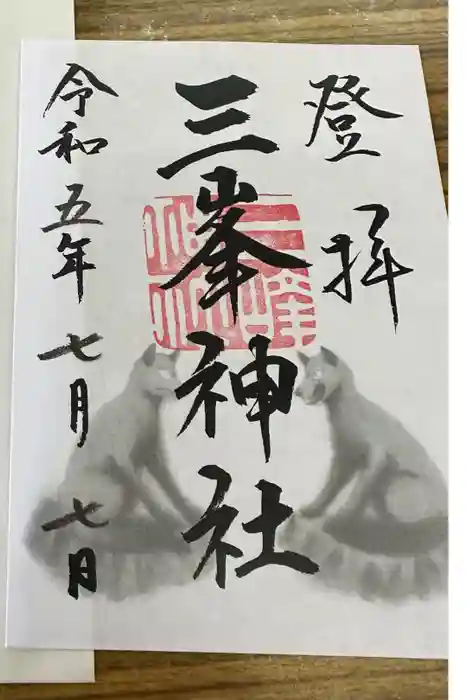 登拝
三峯神社
令和五年七月七日